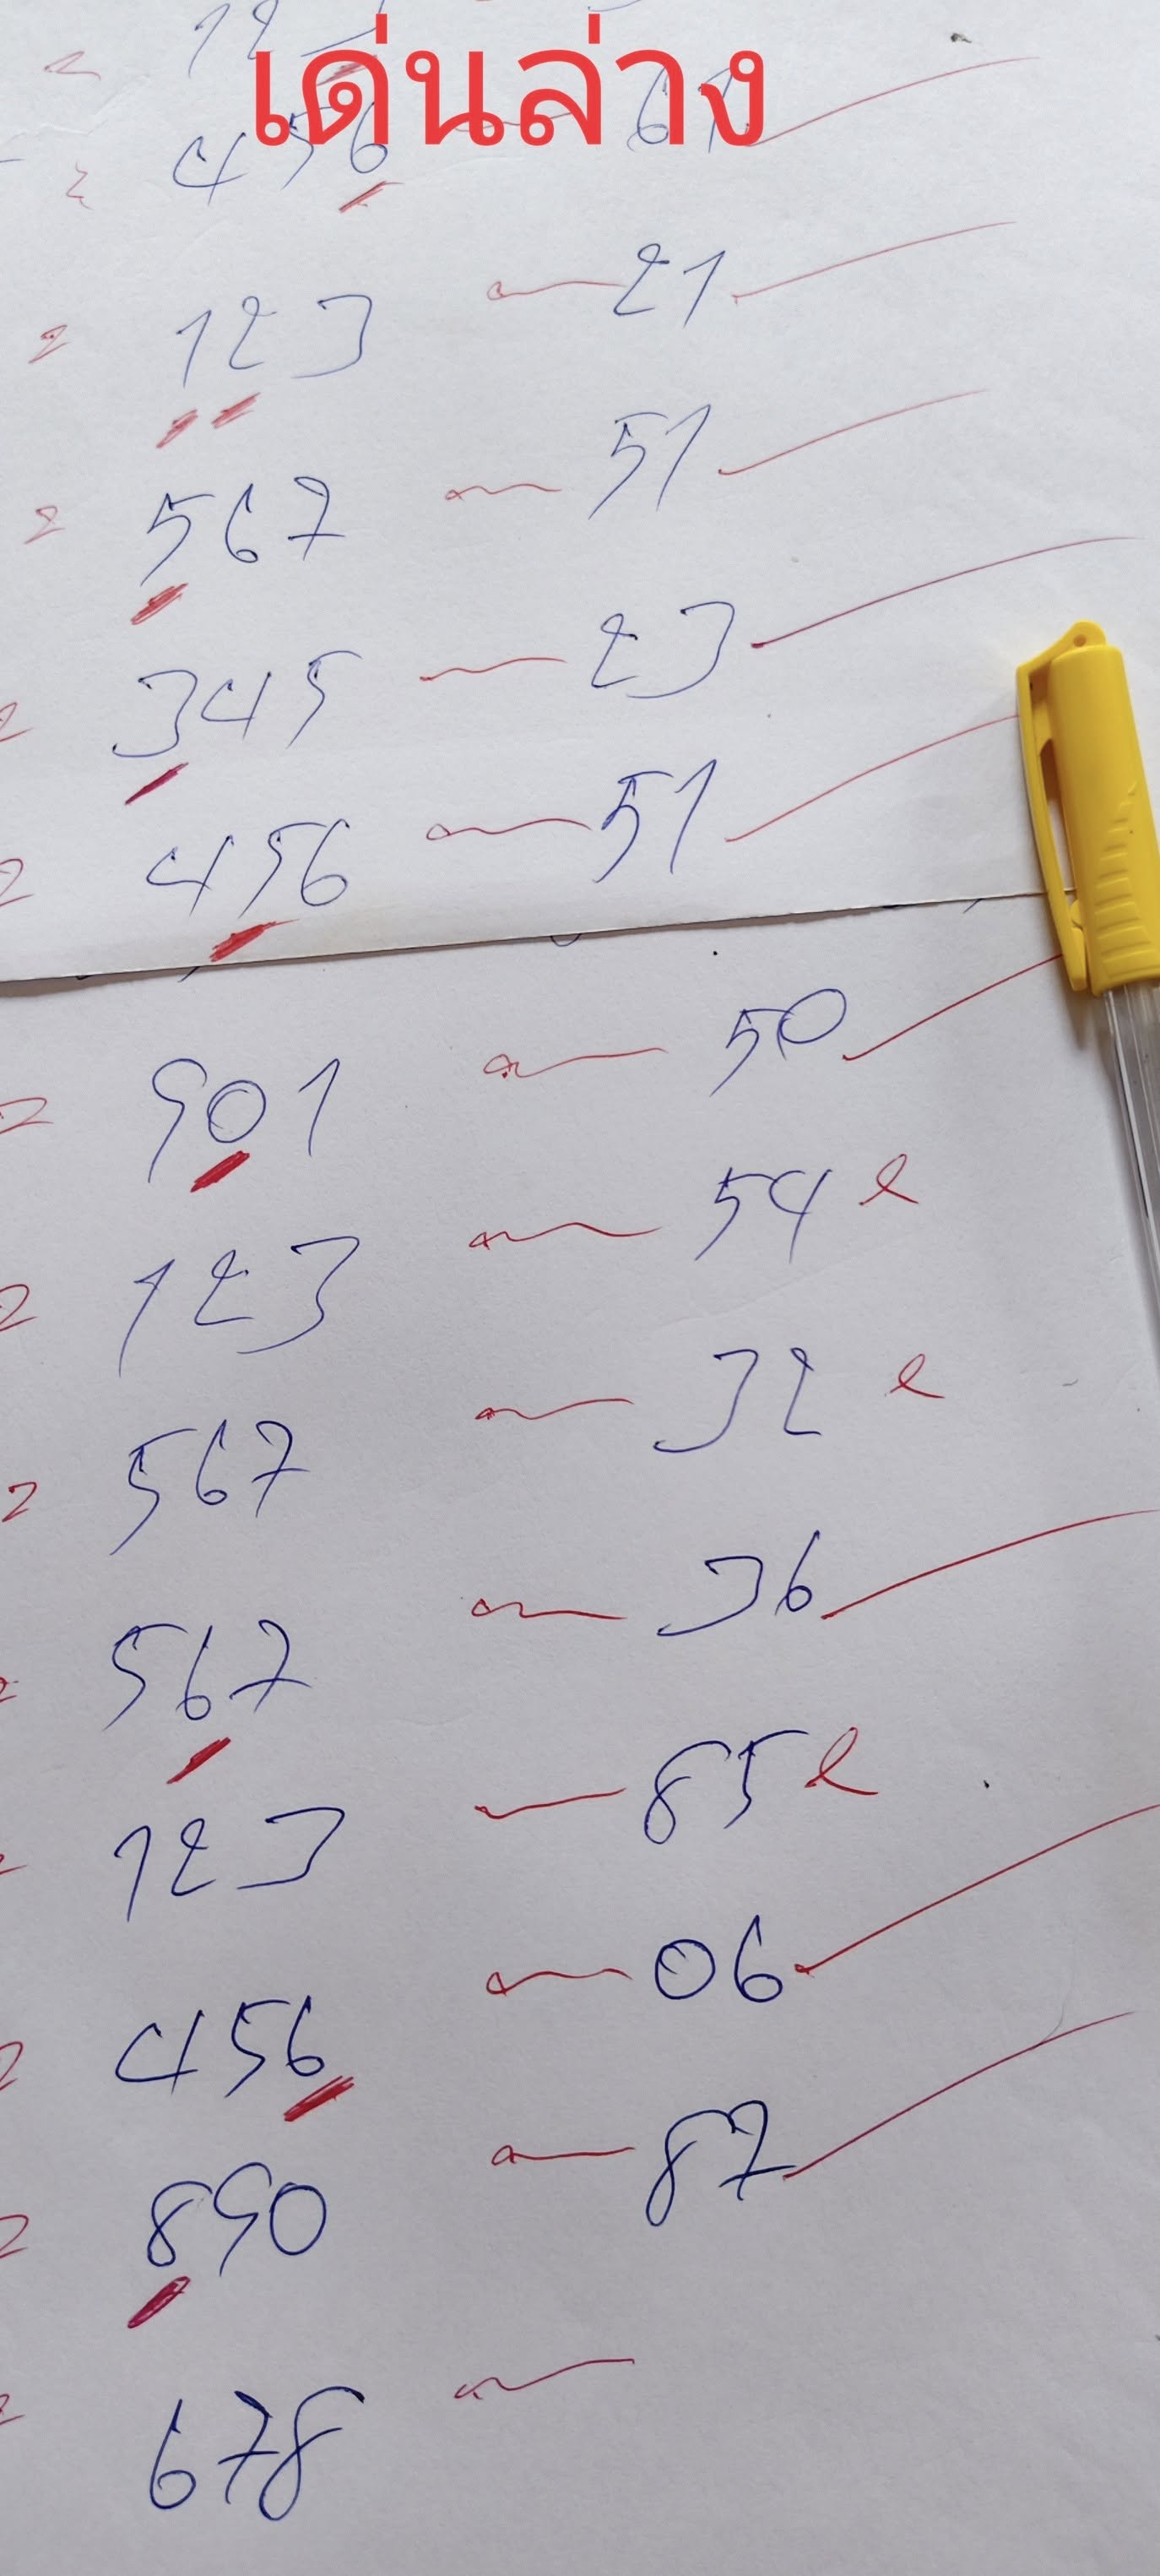 เด่นล่าง
456 61
123 21
567 51
345 23
456 51
901 50
123 54
567 32
567 36
123 85
456 06
890 87
678